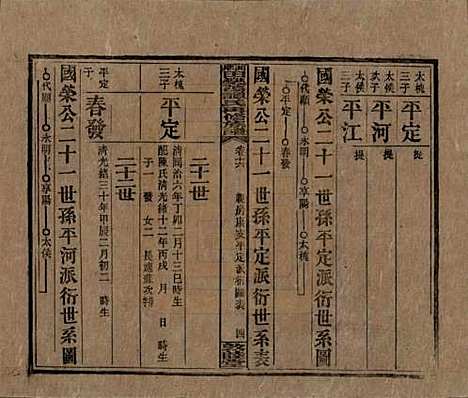 太槐三子 平定 提
太侯次子 平河 提
太侯三子 平江 提
國榮公二十一世孫平定派衍世系圖
代顯 永明 享陽 太槐
平定 春發
國榮公二十一世孫平定派衍世系表
卷十六
平定派衍圖表
四
敦睦堂
二十世
太槐三子 平定 清同治六年丁卯二月十三巳時生
配陳氏清光緒十二年丙戌 月 日 時生
子一 發 女二 長適 次特
二十一世
平定子 春發 清光緒三十年甲辰二月初二 時生
國榮公二十一世孫平河派衍世系圖
代顯 永明 享陽 太侯